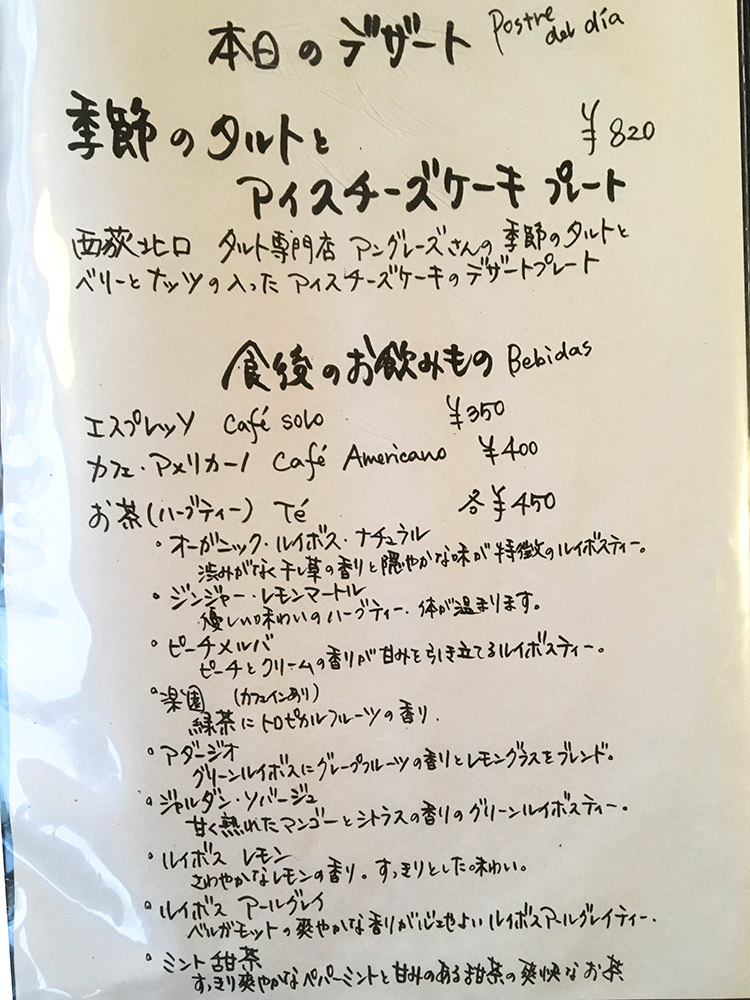 本日のデザート Postre del día
季節のタルトと ¥820
アイスチーズケーキ プレート
西荻北口 タルト専門店 アングレーズさんの季節のタルトと
ベリーとナッツの入った アイスチーズケーキのデザートプレート
食後のお飲みもの Bebidas
エスプレッソ Café solo ¥350
カフェ・アメリカーノ Café Americano ¥400
お茶(ハーブティー) Té 各¥450
・オーガニック・ルイボス・ナチュラル
渋みがなく干し草の香りと穏やかな味が特徴のルイボスティー。
・ジンジャー・レモンマートル
優しい味わいのハーブティー.体が温まります。
・ピーチメルバ
ピーチとクリームの香りが甘みを引き立てるルイボスティー。
・楽園 (カフェインあり)
緑茶にトロピカルフルーツの香り.
・アダージオ
グリーンルイボスにグレープフルーツの香りとレモングラスをブレンド。
・ジャルダン・ソバージュ
甘く熟れたマンゴーとシトラスの香りのグリーンルイボスティー。
・ルイボス レモン
さわやかなレモンの香り。すっきりとした味わい。
・ルイボス アールグレイ
ベルガモットの爽やかな香りが心地よいルイボスアールグレイティー.
・ミント甜茶
すっきり爽やかなペパーミントと甘みのある甜茶の爽快なお茶